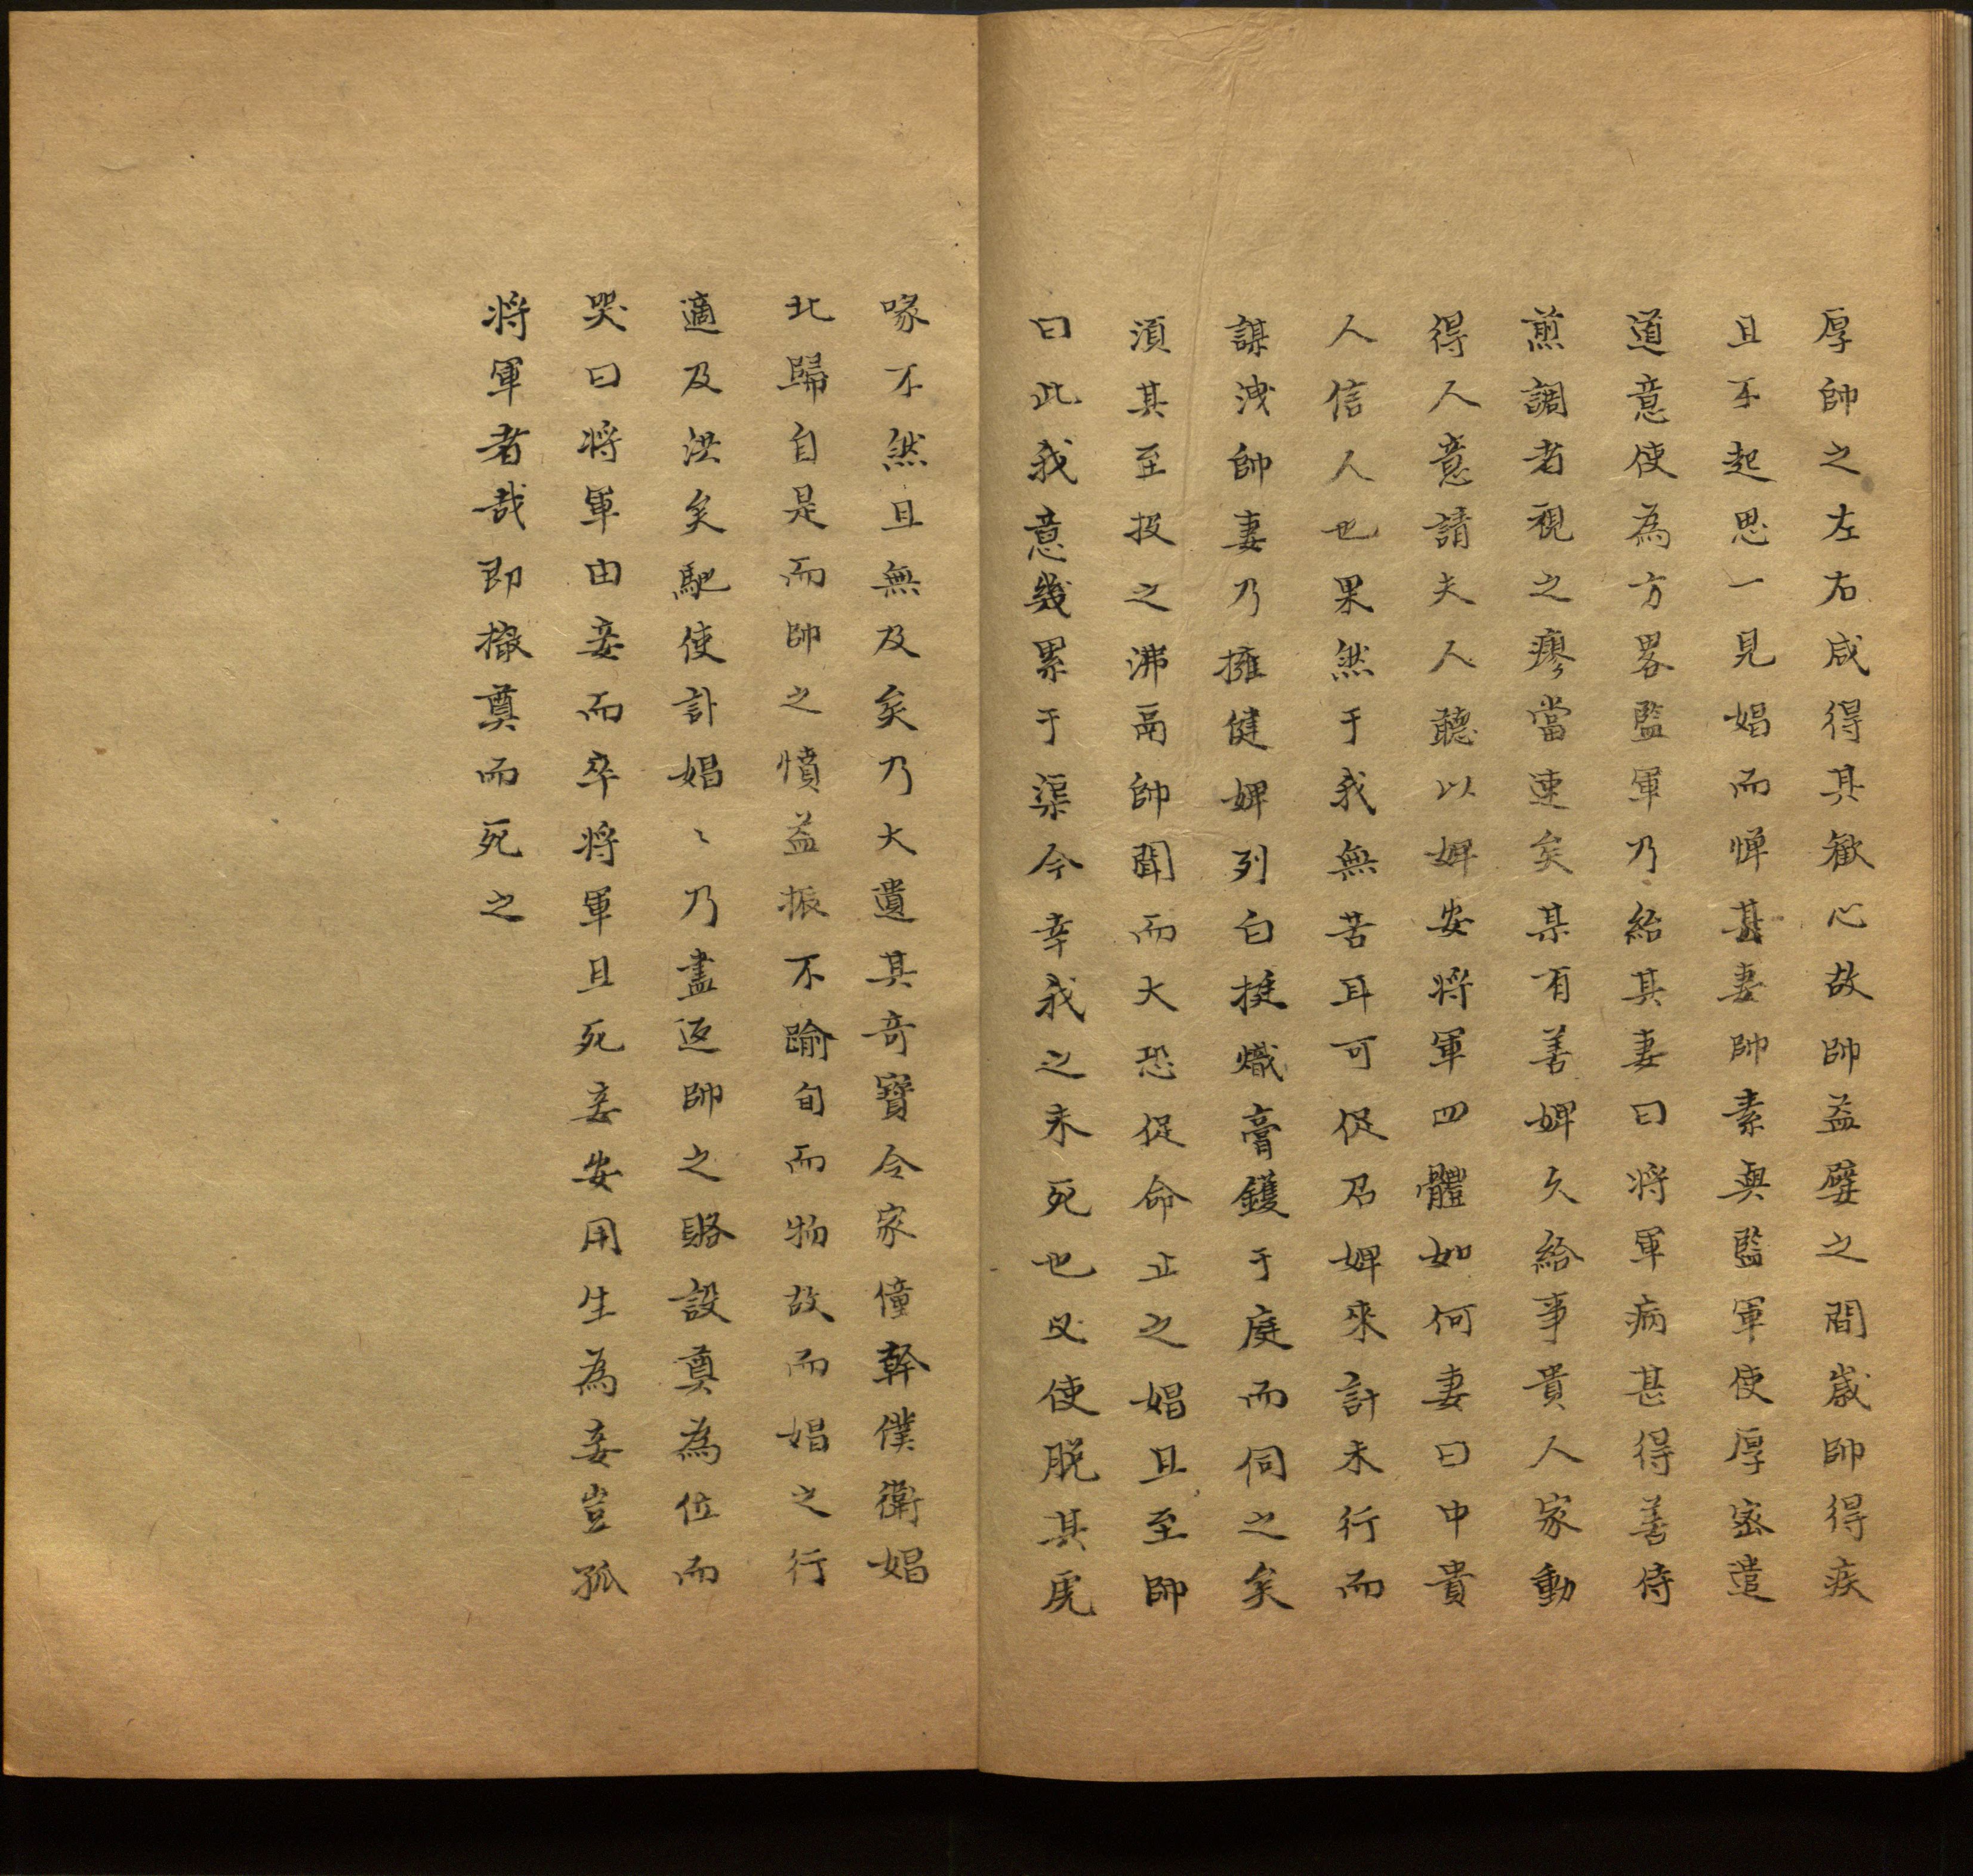 厚帥之左右咸得其歡心故帥益嬖之間歲帥得疾
且不起思一見娼而憚其妻帥素與監軍使厚密遣
道意使為方畧監軍乃紿其妻曰將軍病甚得善侍
煎調者視之瘳當速矣某有善婢久給事貴人家動
得人意請夫人聽以婢安將軍四體如何妻曰中貴
人信人也果然于我無苦耳可促召婢來計未行而
謀洩帥妻乃擁健婢列白挺熾膏鑊于庭而伺之矣
湏其至投之沸鬲帥聞而大恐促命止之娼且至帥
曰此我意幾累于渠今幸我之未死也必使脫其虎
喙不然且無及矣乃大遺其奇寶令家僮幹僕衛娼
北歸自是而帥之憤益振不踰旬而物故而娼之行
適及洪矣馳使訃娼〻乃盡返帥之賂設奠為位而
哭曰將軍由妾而卒將軍且死妾安用生為妾豈孤
將軍者哉即撤奠而死之